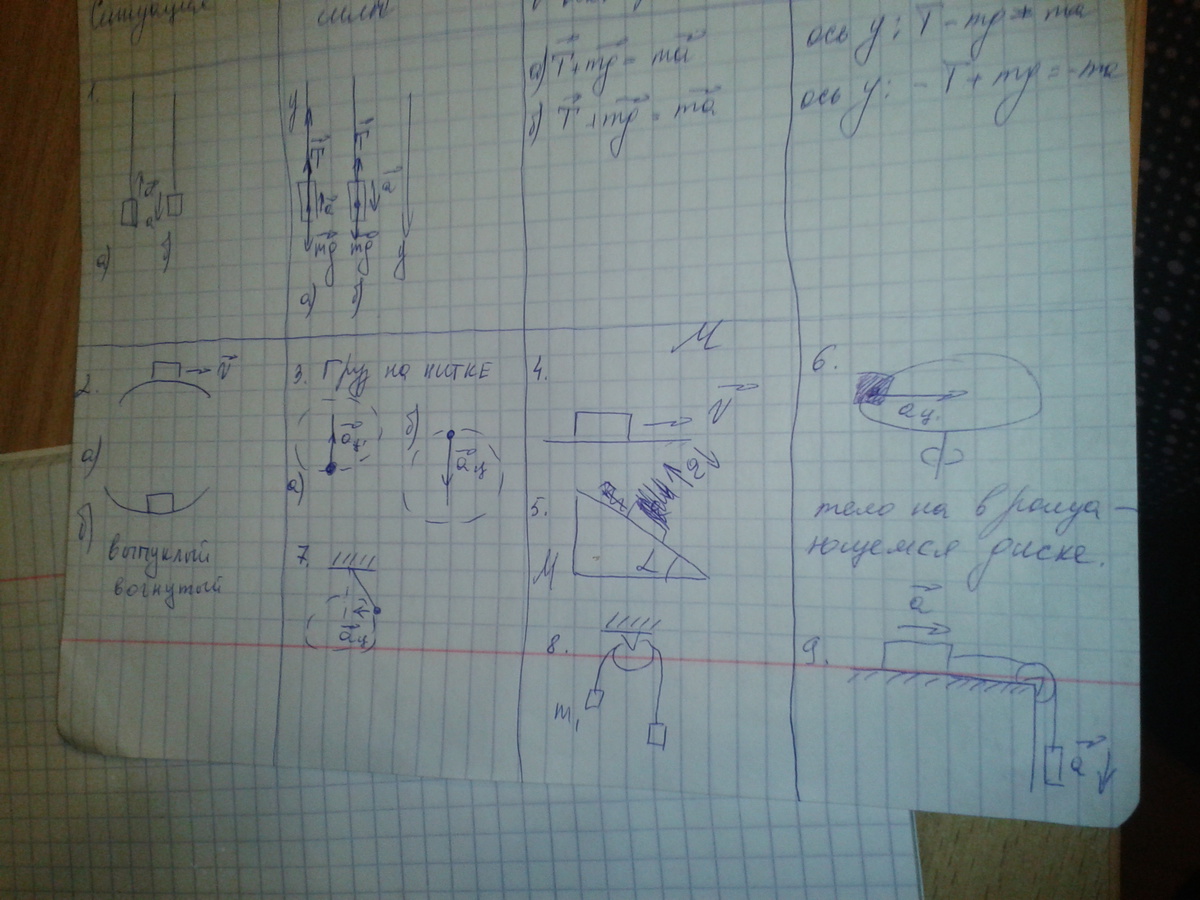 Ситуация
силы
а) T + mg = ma
б) T + mg = ma
ось y: T - mg = ma
ось y: - T + mg = -ma
1.
y
T
T
a
a
a
a
mg
mg
y
а)
б)
а)
б)
2.
v
а)
б)
выпуклый
вогнутый
3. Груз на нитке
б)
aц
aц
а)
7.
aц
M
4.
V
5.
a
M
L
8.
m1
6.
aц.
тело на враща-
ющемся диске.
9.
a
a